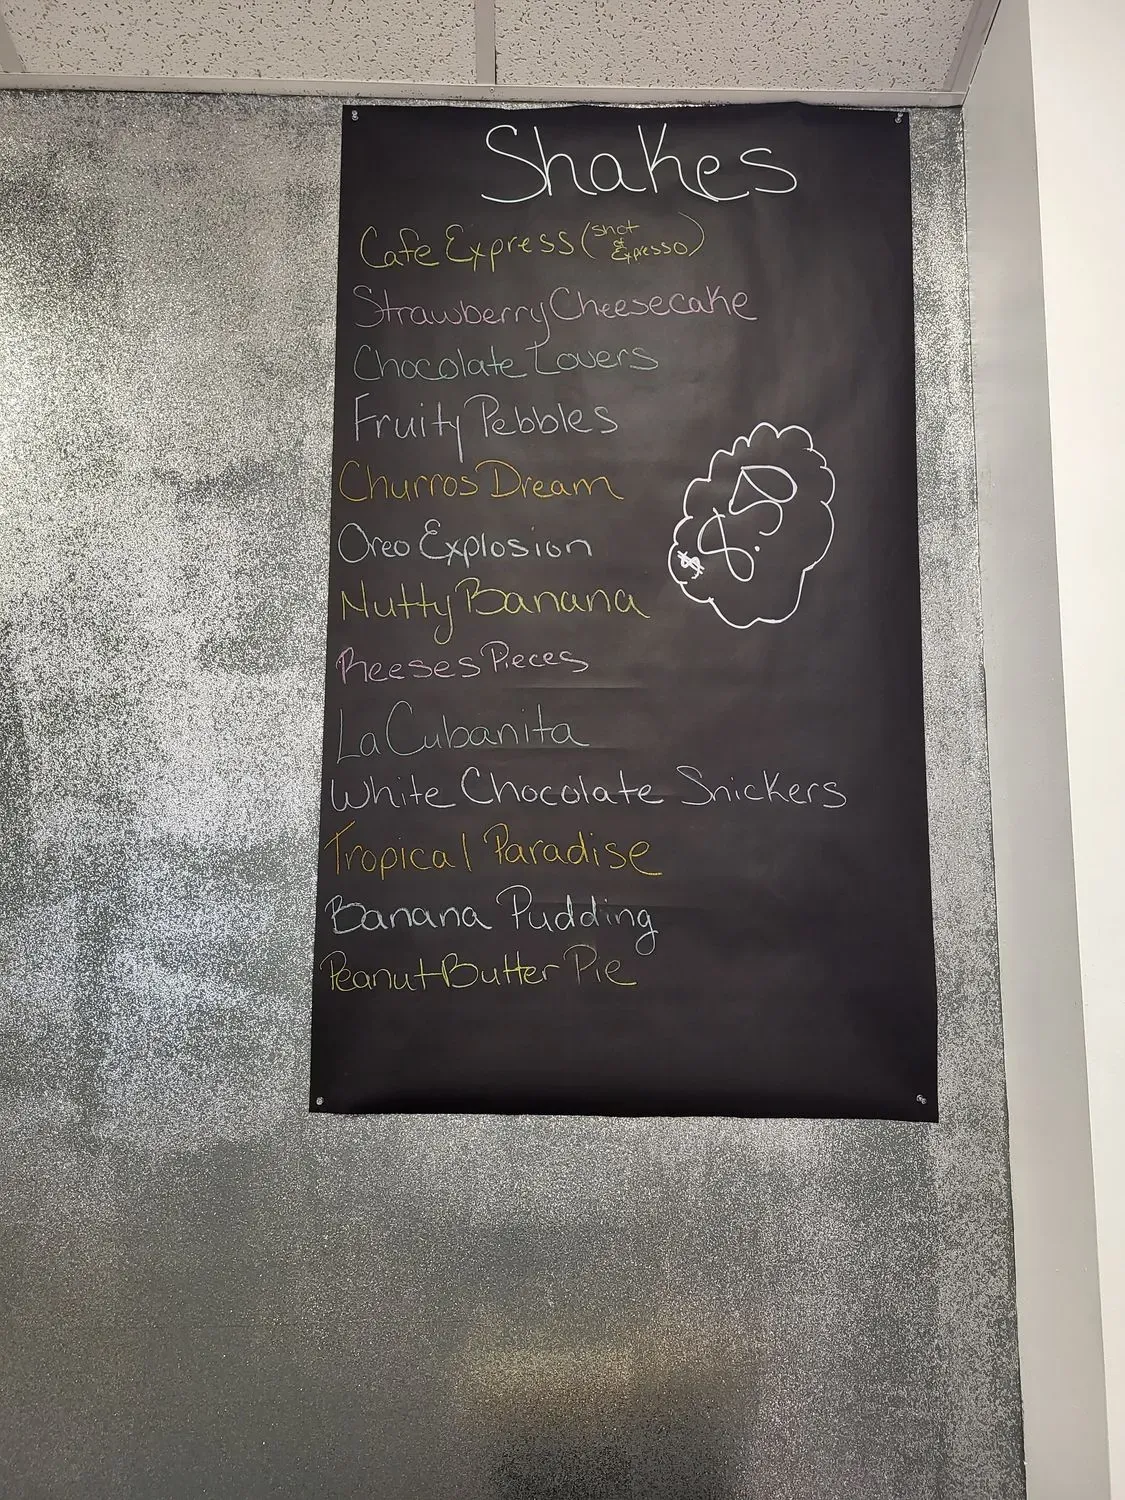 Shakes
Cafe Express (shot of Expresso)
Strawberry Cheesecake
Chocolate Lovers
Fruity Pebbles
Churros Dream
Oreo Explosion
Nutty Banana
Reeses Pieces
La Cubanita
White Chocolate Snickers
Tropical Paradise
Banana Pudding
Peanut Butter Pie